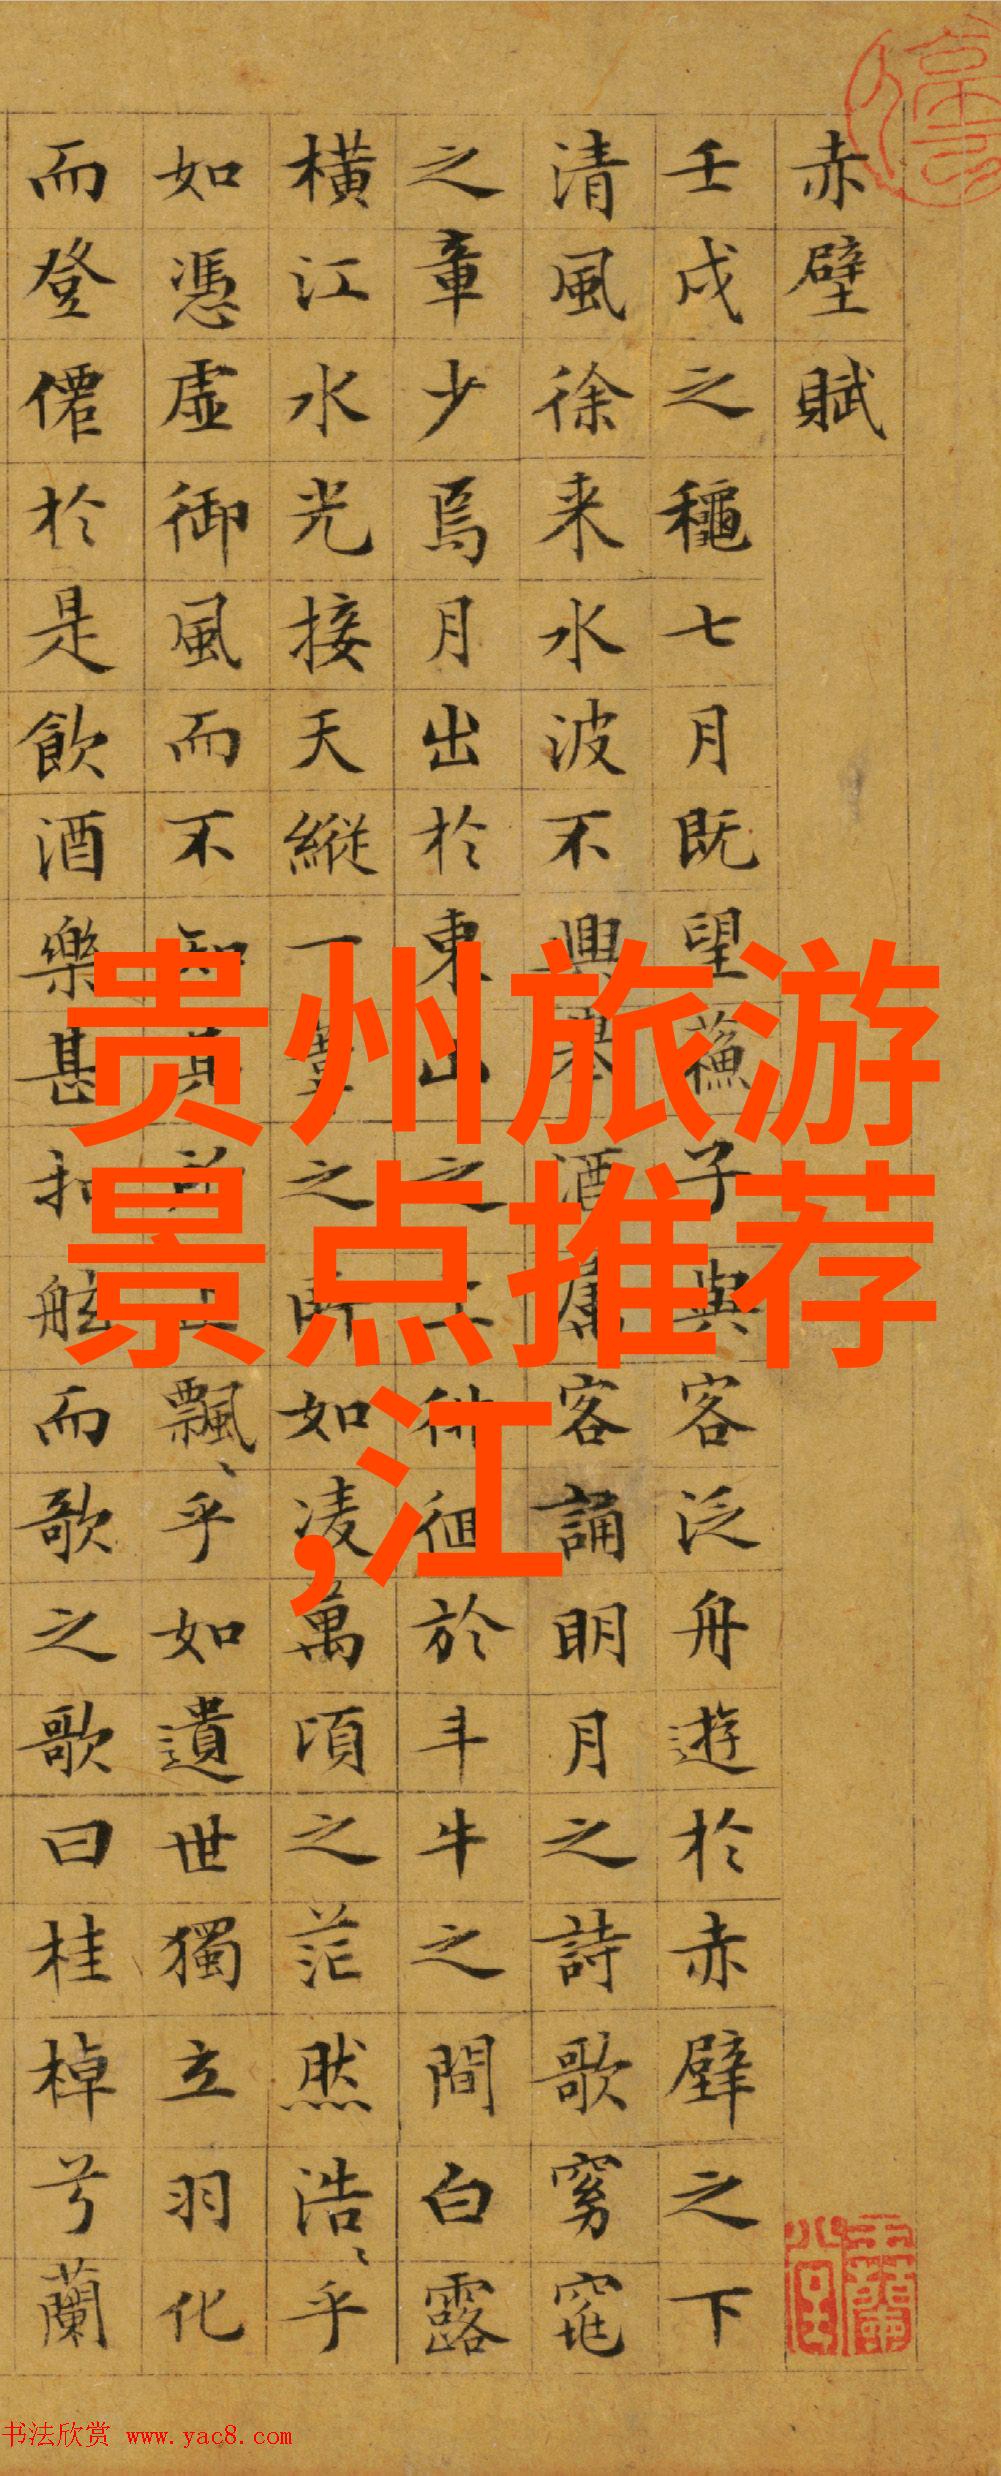 赤壁賦
壬戌之穐七月既望蘓子與客泛舟遊於赤壁之下
清風徐来水波不興舉酒屬客誦明月之詩歌窈窕
之章少焉月出於東山之上徘徊於斗牛之間白露
横江水光接天縱一葦之所如凌萬頃之茫然浩〻乎
如憑虚御風而不知其所止飄〻乎如遺世獨立羽化
而登僊於是飲酒樂甚扣舷而歌之歌曰桂棹兮蘭
贵州旅游
景点推荐
,江
书法欣赏 www.yac8.com